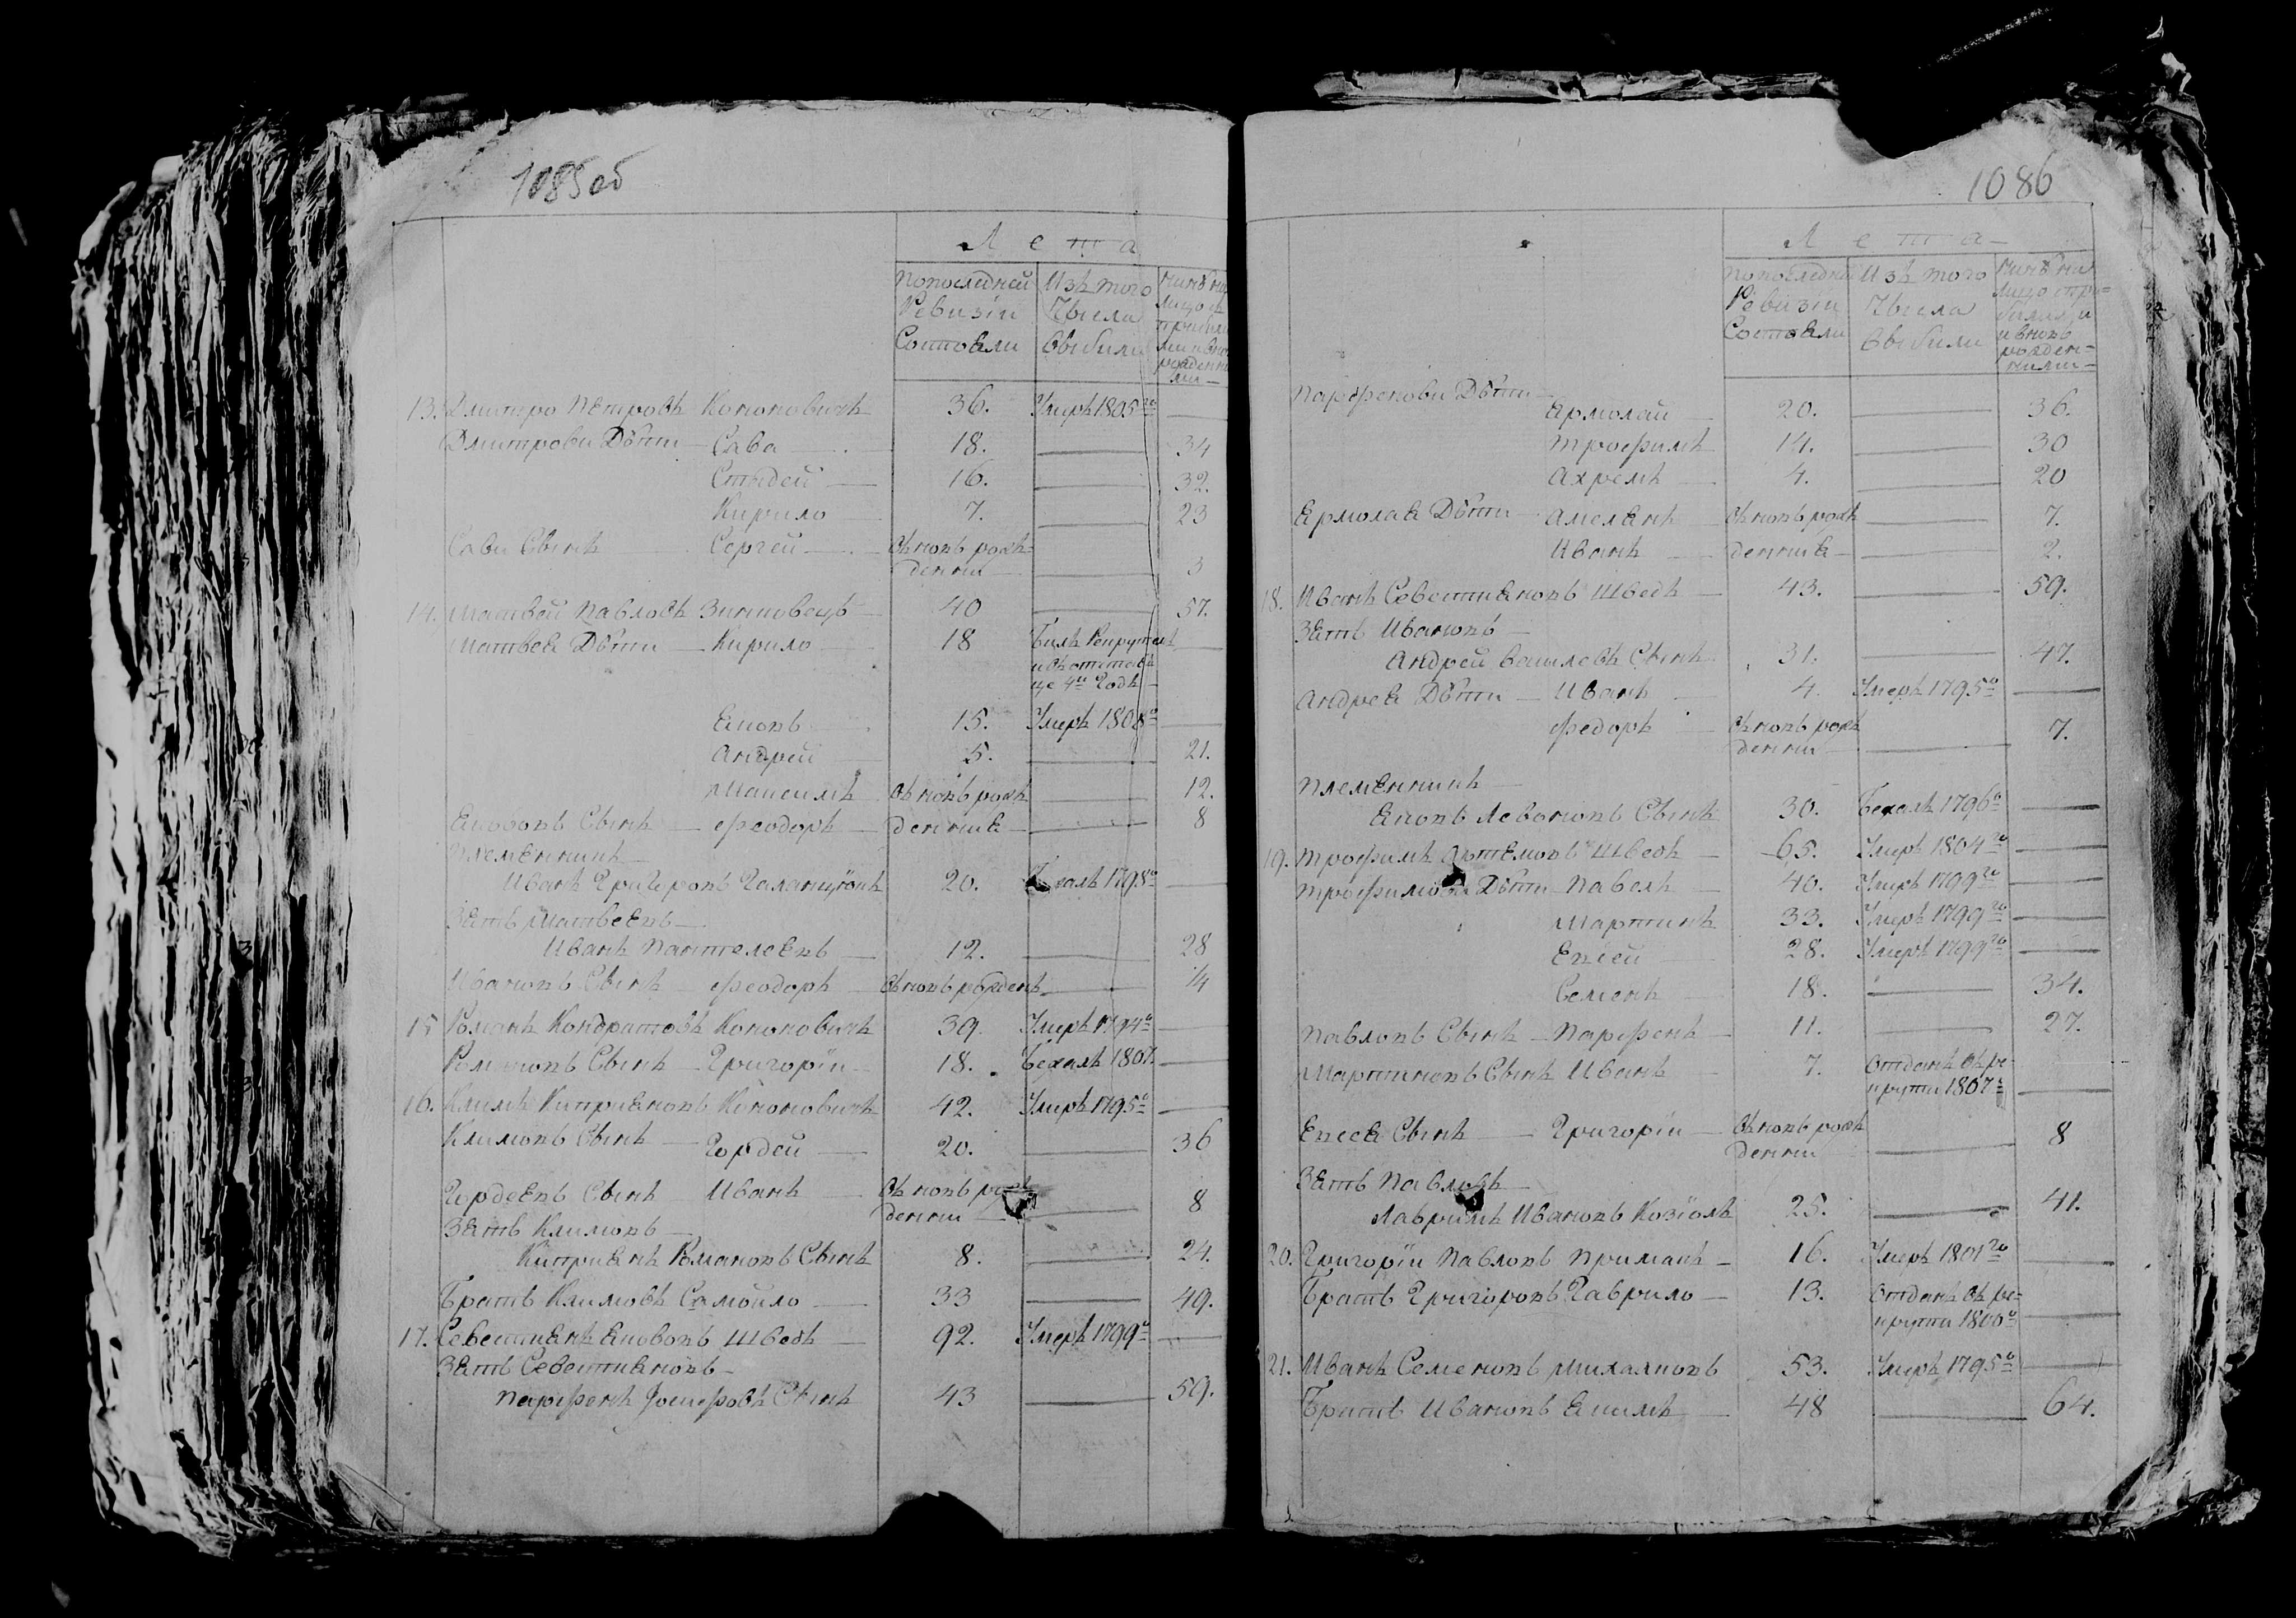 1085об
Лета
Попоследней Изъ того
Ревизіи Числа
Состояли Выбили
13. Дмитро Петровъ Кононовичъ 36. Умеръ 1805го —
Дмитрови Дѣти — Сава — 18. — 34
16. — 32.
Кирило — 7. — 23
Сави Сынъ Сергей — Вновь рож-
денни — 3
14. Матвей Павловъ Зинковецъ — 40 — 57.
Матвея Дѣти — Кирило 18 —
15. Умеръ 1808го —
Андрей — 5. — 21.
Максимъ Вновь рож — 12.
Сынъ — Феодоръ — денния — 8
Племянникъ —
Иванъ 20. 1798го —
Зять Матвеевъ —
Иванъ Пантелеевъ — 12. — 28
Ивановъ Сынъ — Феодоръ — Вновь рожденъ — 14
15 Романъ Кондратовъ Кононовичъ 39. Умеръ 1794го —
Романовъ Сынъ — Григорій — 18. Бежалъ 1807. —
16. Климъ Кипріяновъ Кононовичъ 42. Умеръ 1795го —
Климовъ Сынъ — Гордей — 20. — 36
Гордеевъ Сынъ Иванъ — Вновь рож
денни — 8
Зять Климовъ —
Кипріянъ Романовъ Сынъ 8. — 24.
Братъ Климовъ Самойло — 33 — 49.
17. Севестиянъ Якововъ Шведъ — 92. Умеръ 1799го —
Зять Севестияновъ —
Парфенъ Сынъ 43 — 59.
1086
Лета
Попоследней Изъ того
Ревизіи Числа
Состояли Выбили
Парфенови Дѣти —
Ермолай — 20. — 36.
Трофимъ — 14. — 30
Ахремъ — 4. — 20
Ермолая Дѣти — Амелянъ — Вновь рож — 7.
Иванъ — денния — 2.
18. Иванъ Севестияновъ Шведъ — 43. — 59.
Зять Ивановъ —
Андрей Василевъ Сынъ 31. — 47.
Андрея Дѣти — Иванъ — 4. Умеръ 1795го —
Федоръ — Вновь рож
денни — 7.
Племянникъ —
Яковъ Левоновъ Сынъ 30. Бежалъ 1796го —
19. Трофимъ Артемовъ Шведъ — 65. Умеръ 1804го —
Дѣти — Павелъ — 40. Умеръ 1799го —
Мартинъ 33. Умеръ 1799го —
Евсей — 28. Умеръ 1799го —
Семенъ — 18. — 34.
Павловъ Сынъ — Парфенъ — 11. — 27.
Мартиновъ Сынъ Иванъ — 7. Отданъ в ре-
крути 1807г —
Евсея Сынъ — Григорій — Вновь рож
денни — 8
Зять Павловъ —
Ивановъ Козіолъ 25. — 41.
20. Григорій Павловъ Примакъ — 16. Умеръ 1801го —
Братъ Григоровъ Гаврило — 13. Отданъ в ре-
крути —
21. Иванъ Семеновъ 53. Умеръ 1795го —
Братъ Ивановъ Якимъ — 48 — 64.